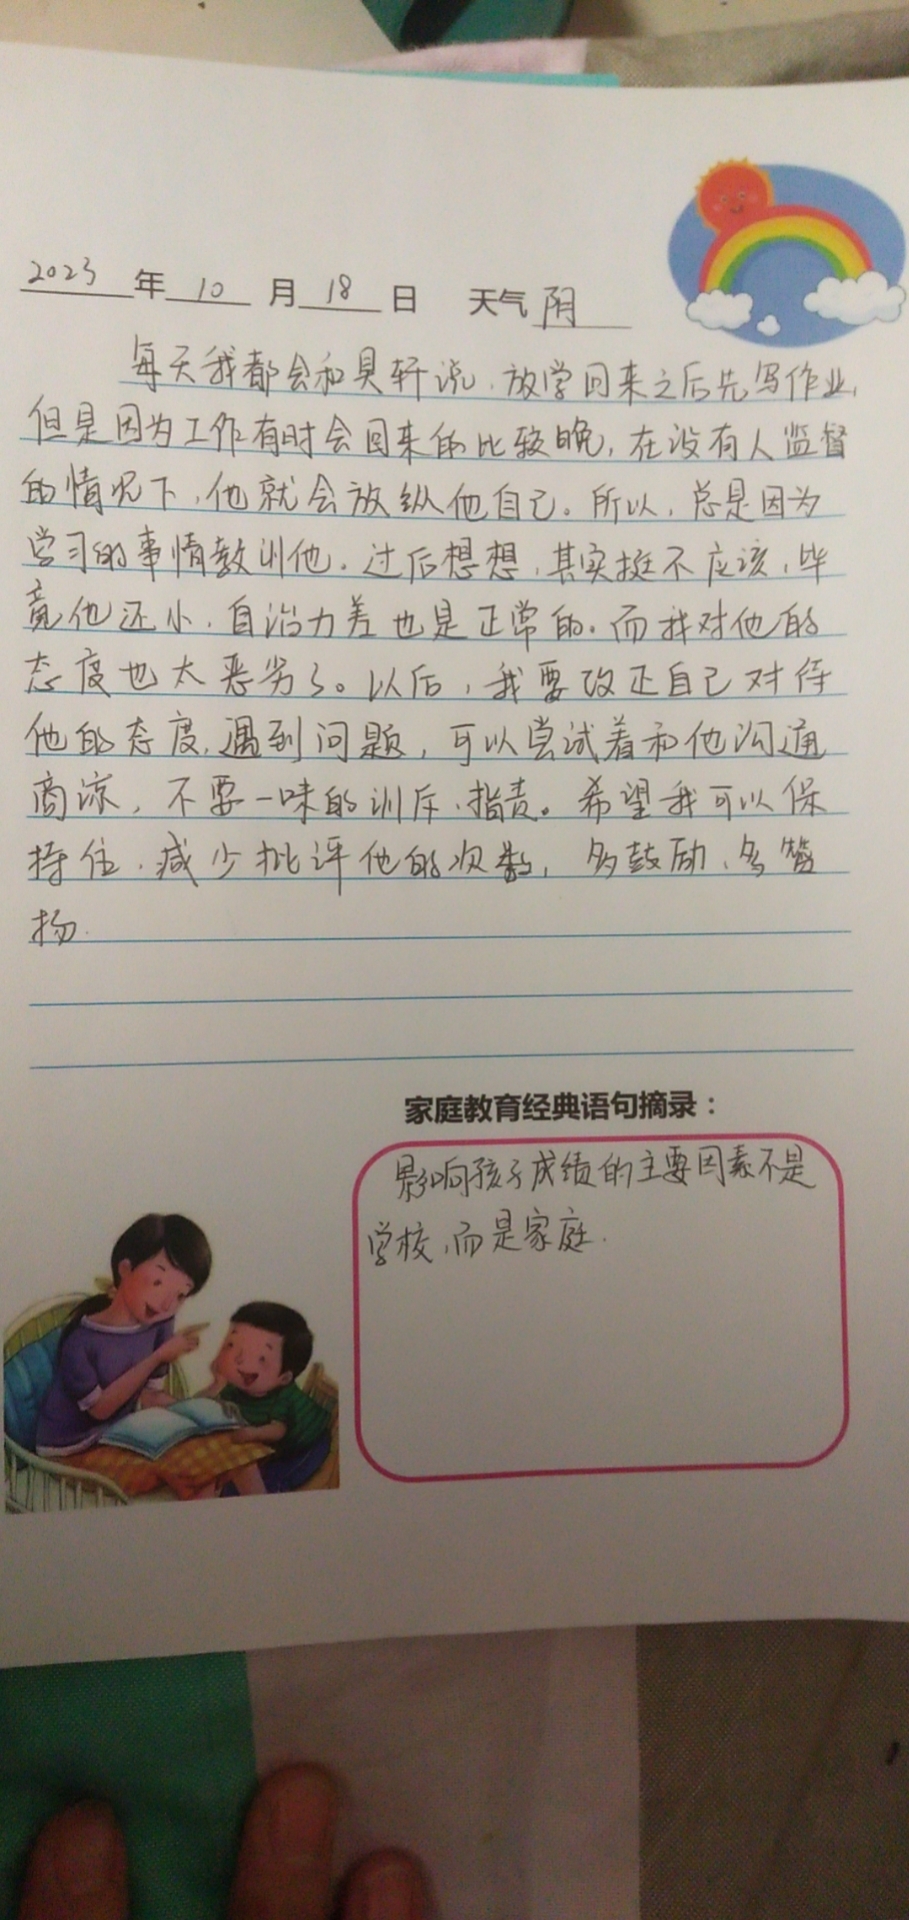 2023年10月18日 天气阴
每天我都会和昊轩说,放学回来之后先写作业,
但是因为工作有时会回来的比较晚,在没有人监督
的情况下,他就会放纵他自己。所以,总是因为
学习的事情教训他.过后想想,其实挺不应该,毕
竟他还小,自治力差也是正常的.而我对他的
态度也太恶劣了。以后,我要改正自己对待
他的态度,遇到问题,可以尝试着和他沟通
商凉,不要一味的训斥、指责。希望我可以保
持住.减少批评他的次数,多鼓励、多赞
扬.
家庭教育经典语句摘录:
影响孩子成绩的主要因素不是
学校,而是家庭.